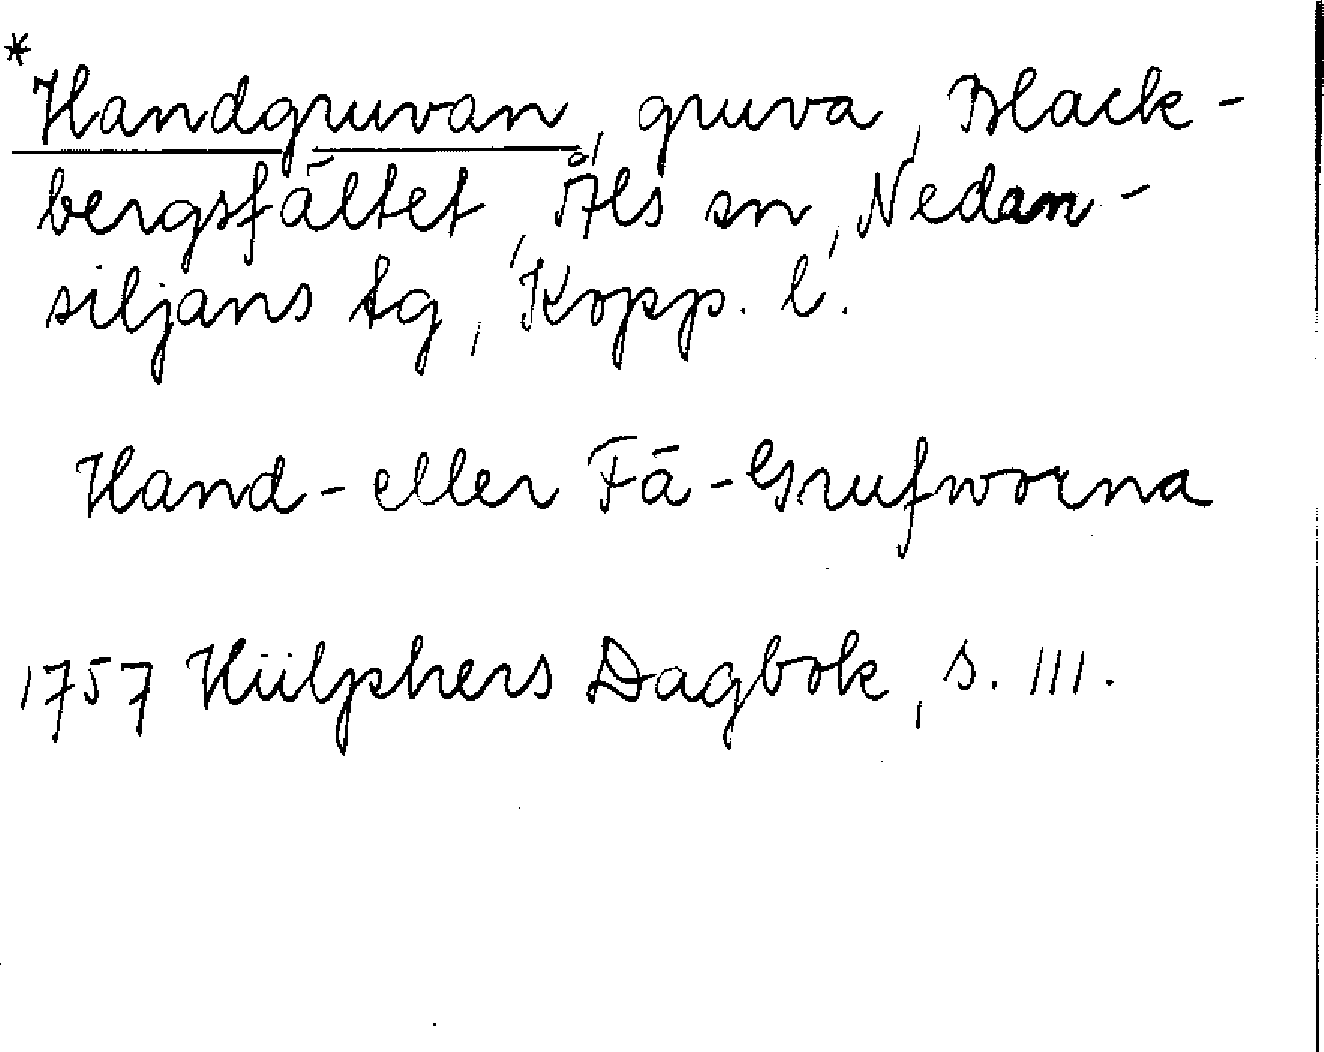 *Handgruvan, gruva, Black-
bergsfältet, Åls sn, Nedan-
siljans tg, Kopp. l.
Hand- eller Fä-Grufworna
1757 Hülphers Dagbok, s. 111.